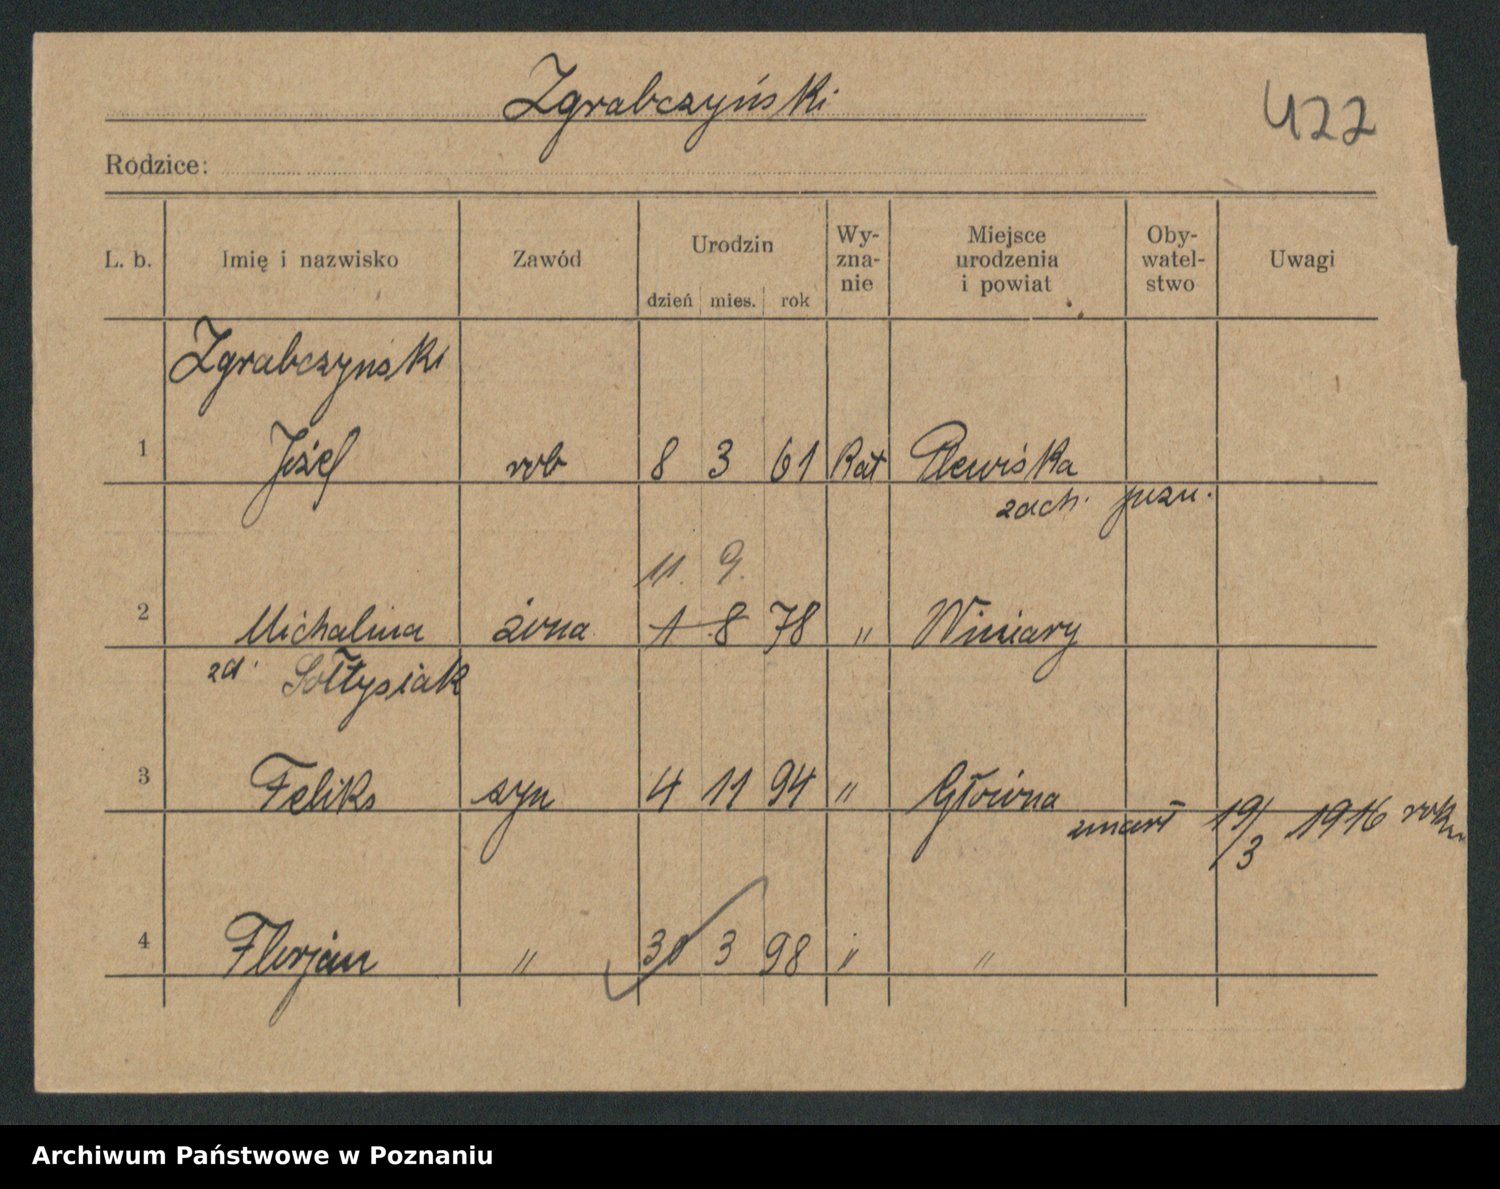 Zgrabczyński
422
Rodzice:
L. b. Imię i nazwisko Zawód Urodzin dzień mies. rok Wy-zna-nie Miejsce urodzenia i powiat Oby-watel-stwo Uwagi
Zgrabczynski
1 Józef rob 8 3 61 Kat Plewiska
zach. pozn.
11. 9.
2 Michalina żona 1 8 78 " Winiary
zd. Sołtysiak
3 Feliks syn 4 11 94 " Główna
zmarł 19/3 1916 roku
4 Florjan " 30 3 98 " "
Archiwum Państwowe w Poznaniu